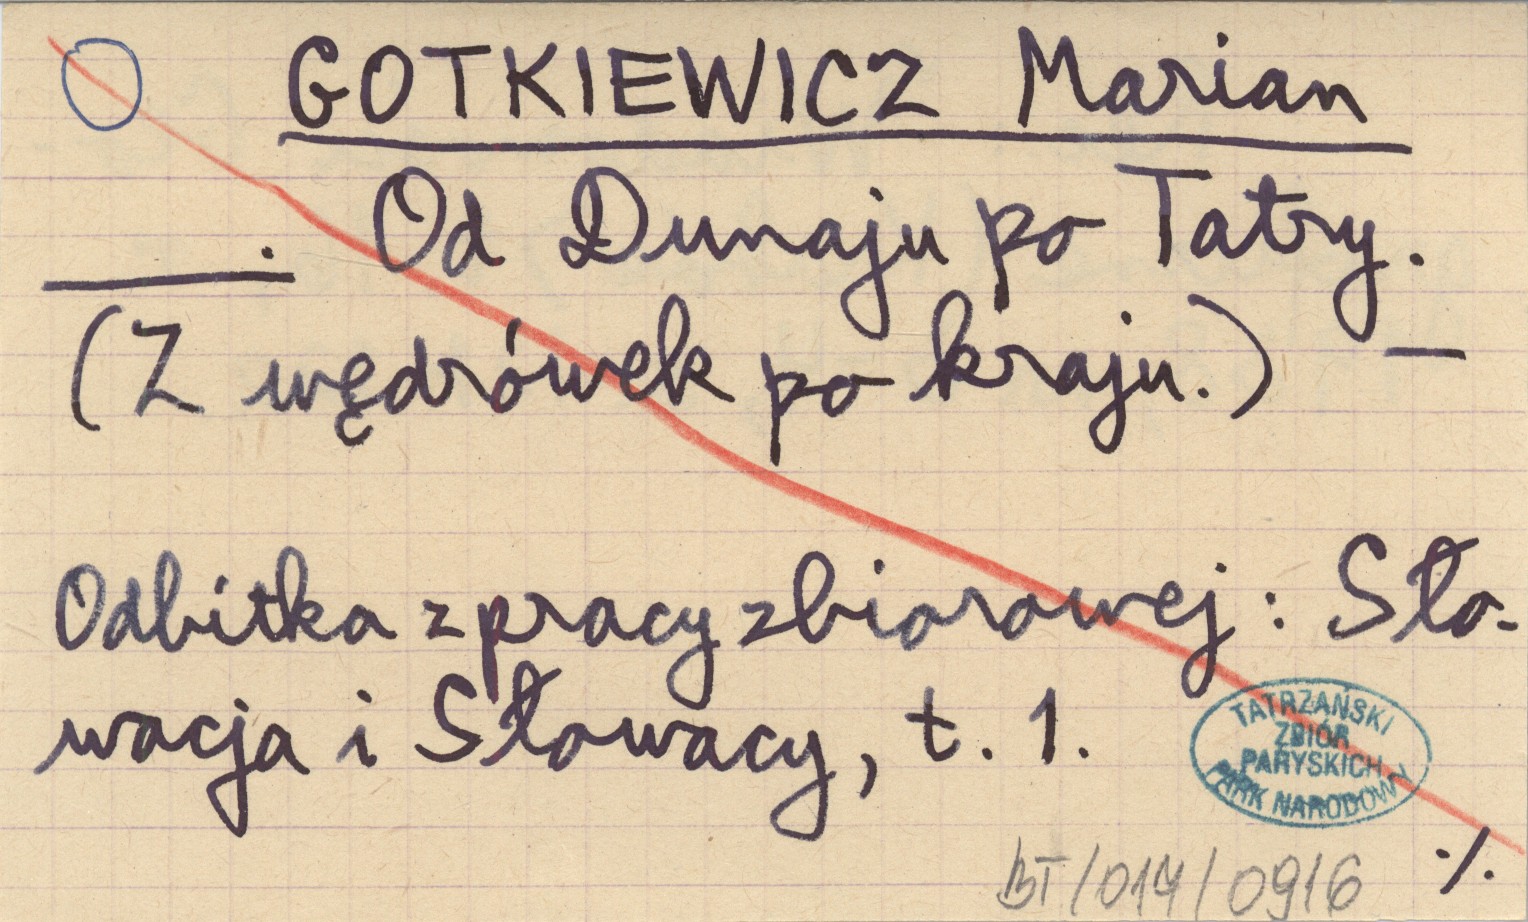 GOTKIEWICZ Marian
. Od Dunaju po Tatry.
(Z wędrówek po kraju.) —
Odbitka z pracy zbiorowej: Sło-
wacja i Słowacy, t. 1.
TATRZAŃSKI
ZBIÓR
PARYSKICH
PARK NARODOWY
./.
BT/017/0916